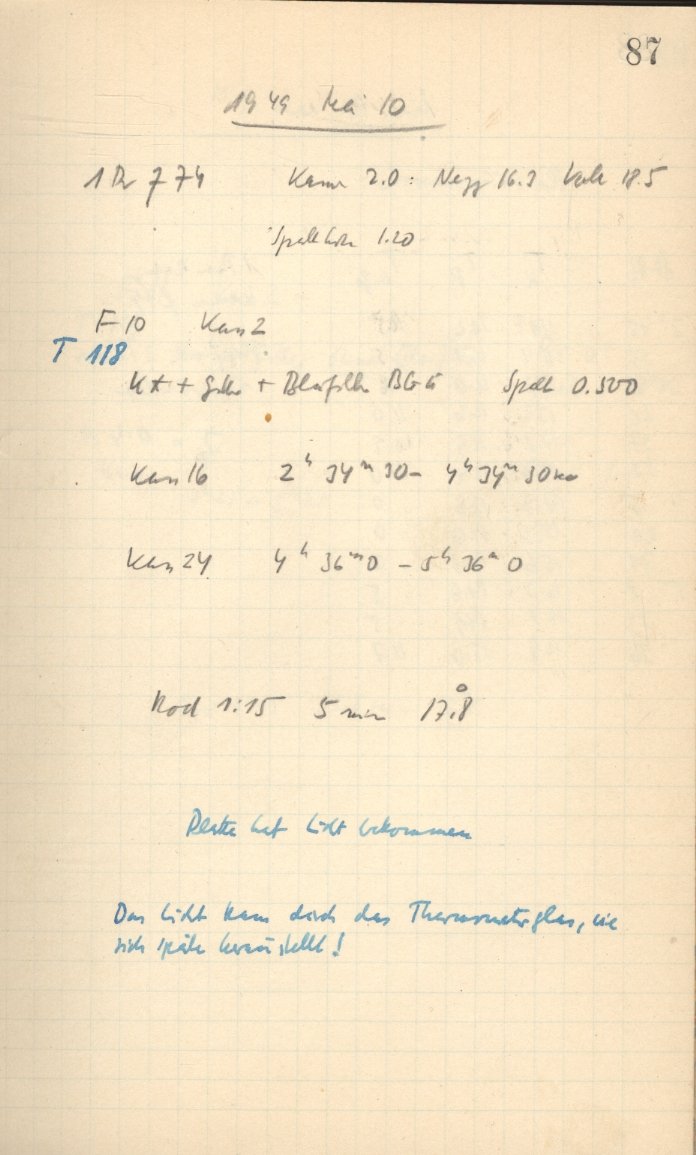 87
1949 Mai 10
774 Kam 2.0: 16.3 18.5
1.20
F 10 Kass 2
T 118
+ + Blaufilter BG 5 Spalt 0.500
Kass 16 2h 34m 30 - 4h 34m 30
Kass 24 4h 36m 0 - 5h 36m 0
Rod 1:15 5 min 17.°8
Platte hat Licht bekommen
Das Licht kam durch das Thermometerglas, wie
sich später herausstellt!